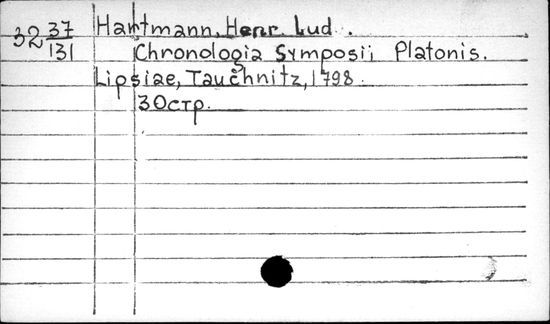 32 37/131
Hartmann, Henr. Lud.
Chronologia Symposii Platonis.
Lipsiae, Tauchnitz, 1798.
30стр.